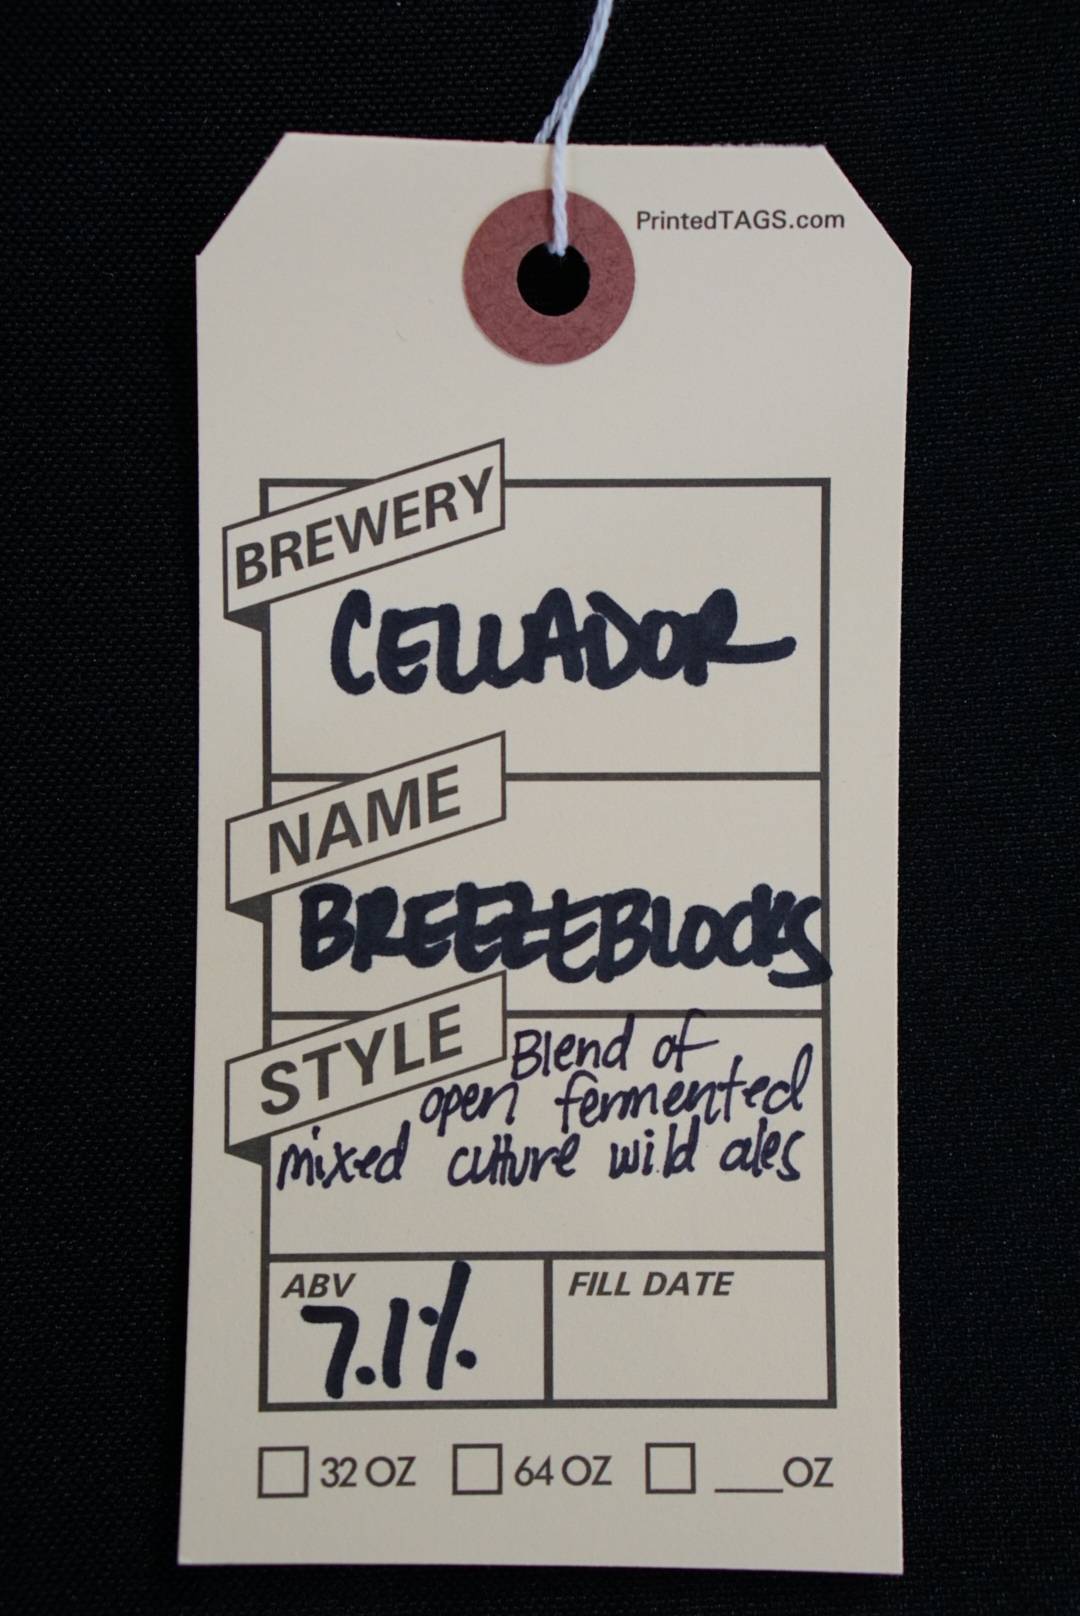 PrintedTAGS.com
BREWERY
CELLADOR
NAME
BREEZEBLOCKS
STYLE
Blend of
open fermented
mixed culture wild ales
ABV
7.1%
FILL DATE
32 OZ 64 OZ ___OZ